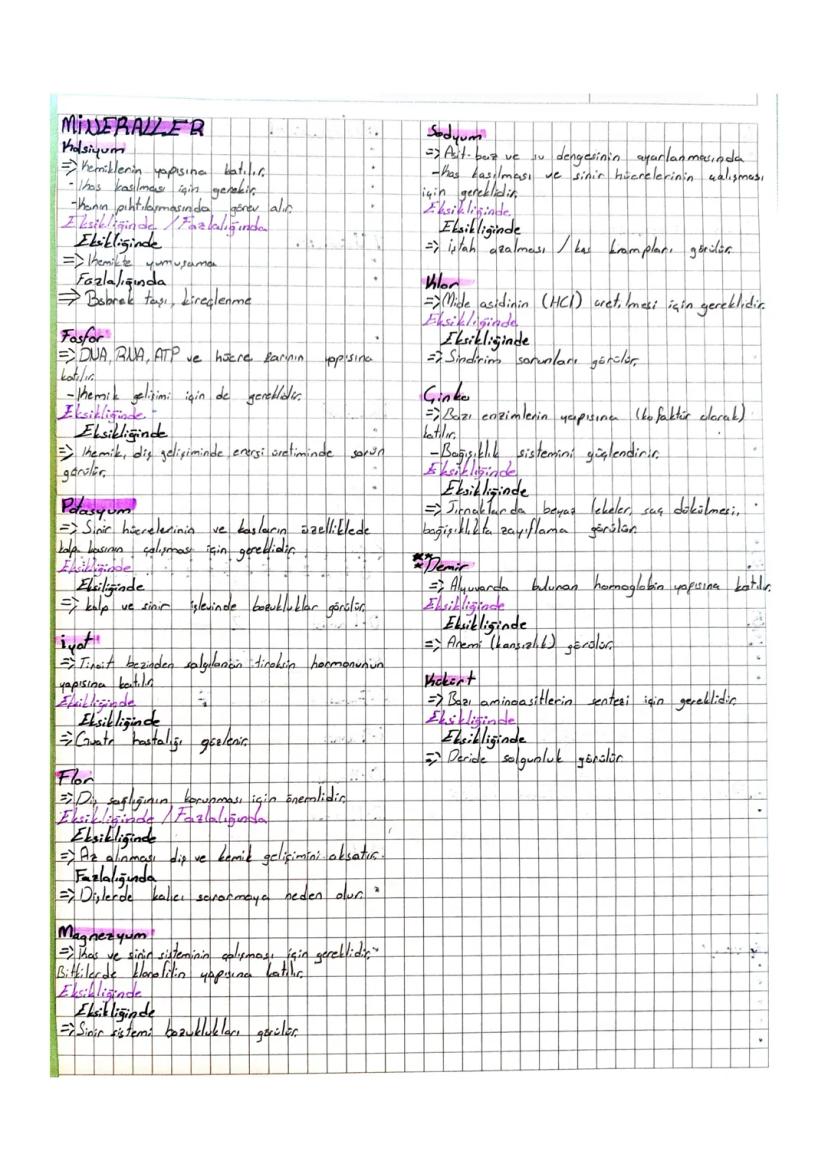 MİNERALLER
Kalsiyum
=> Kemiklerin yapısına katılır.
- Kas kasılması için gerekir.
- Kanın pıhtılaşmasında görev alır.
Eksikliğinde / Fazlalığında
Eksikliğinde
=> Kemikte yumuşama
Fazlalığında
=> Böbrek taşı, kireçlenme
Fosfor
=> DNA, RNA, ATP ve hücre zarının yapısına
katılır.
- Kemik gelişimi için de gereklidir.
Eksikliğinde
Eksikliğinde
=> Kemik, diş gelişiminde, enerji üretiminde sorun
görülür.
Potasyum
=> Sinir hücrelerinin ve kasların özelliklede
kalp kasının çalışması için gereklidir.
Eksikliğinde
Eksiliğinde
=> kalp ve sinir işlevinde bozukluklar görülür.
iyot
=> Tiroit bezinden salgılanan tiroksin hormonunun
yapısına katılır.
Eksikliğinde
Eksikliğinde
=> Guatr hastalığı gözlenir.
Flor
=> Diş sağlığının korunması için önemlidir.
Eksikliğinde / Fazlalığında
Eksikliğinde
=> Az alınması diş ve kemik gelişimini aksatır.
Fazlalığında
=> Dişlerde kalıcı sararmaya neden olur.
Magnezyum
=> Kas ve sinir sisteminin çalışması için gereklidir.
Bitkilerde klorofilin yapısına katılır.
Eksikliğinde
Eksikliğinde
=> Sinir sistemi bozuklukları görülür.
Sodyum
=> Asit-baz ve su dengesinin ayarlanmasında
- Kas kasılması ve sinir hücrelerinin çalışması
için gereklidir.
Eksikliğinde
Eksikliğinde
=> İştah azalması / kas krampları görülür.
Klor
=> Mide asidinin (HCl) üretilmesi için gereklidir.
Eksikliğinde
Eksikliğinde
=> Sindirim sorunları görülür.
Çinko
=> Bazı enzimlerin yapısına (kofaktör olarak)
katılır.
- Bağışıklık sistemini güçlendirir.
Eksikliğinde
Eksikliğinde
=> Tırnaklarda beyaz lekeler, saç dökülmesi,
bağışıklıkta zayıflama görülür.
*** Demir
=> Alyuvarda bulunan hemoglobin yapısına katılır.
Eksikliğinde
Eksikliğinde
=> Anemi (kansızlık) görülür.
Kükürt
=> Bazı aminoasitlerin sentezi için gereklidir.
Eksikliğinde
Eksikliğinde
=> Deride solgunluk görülür